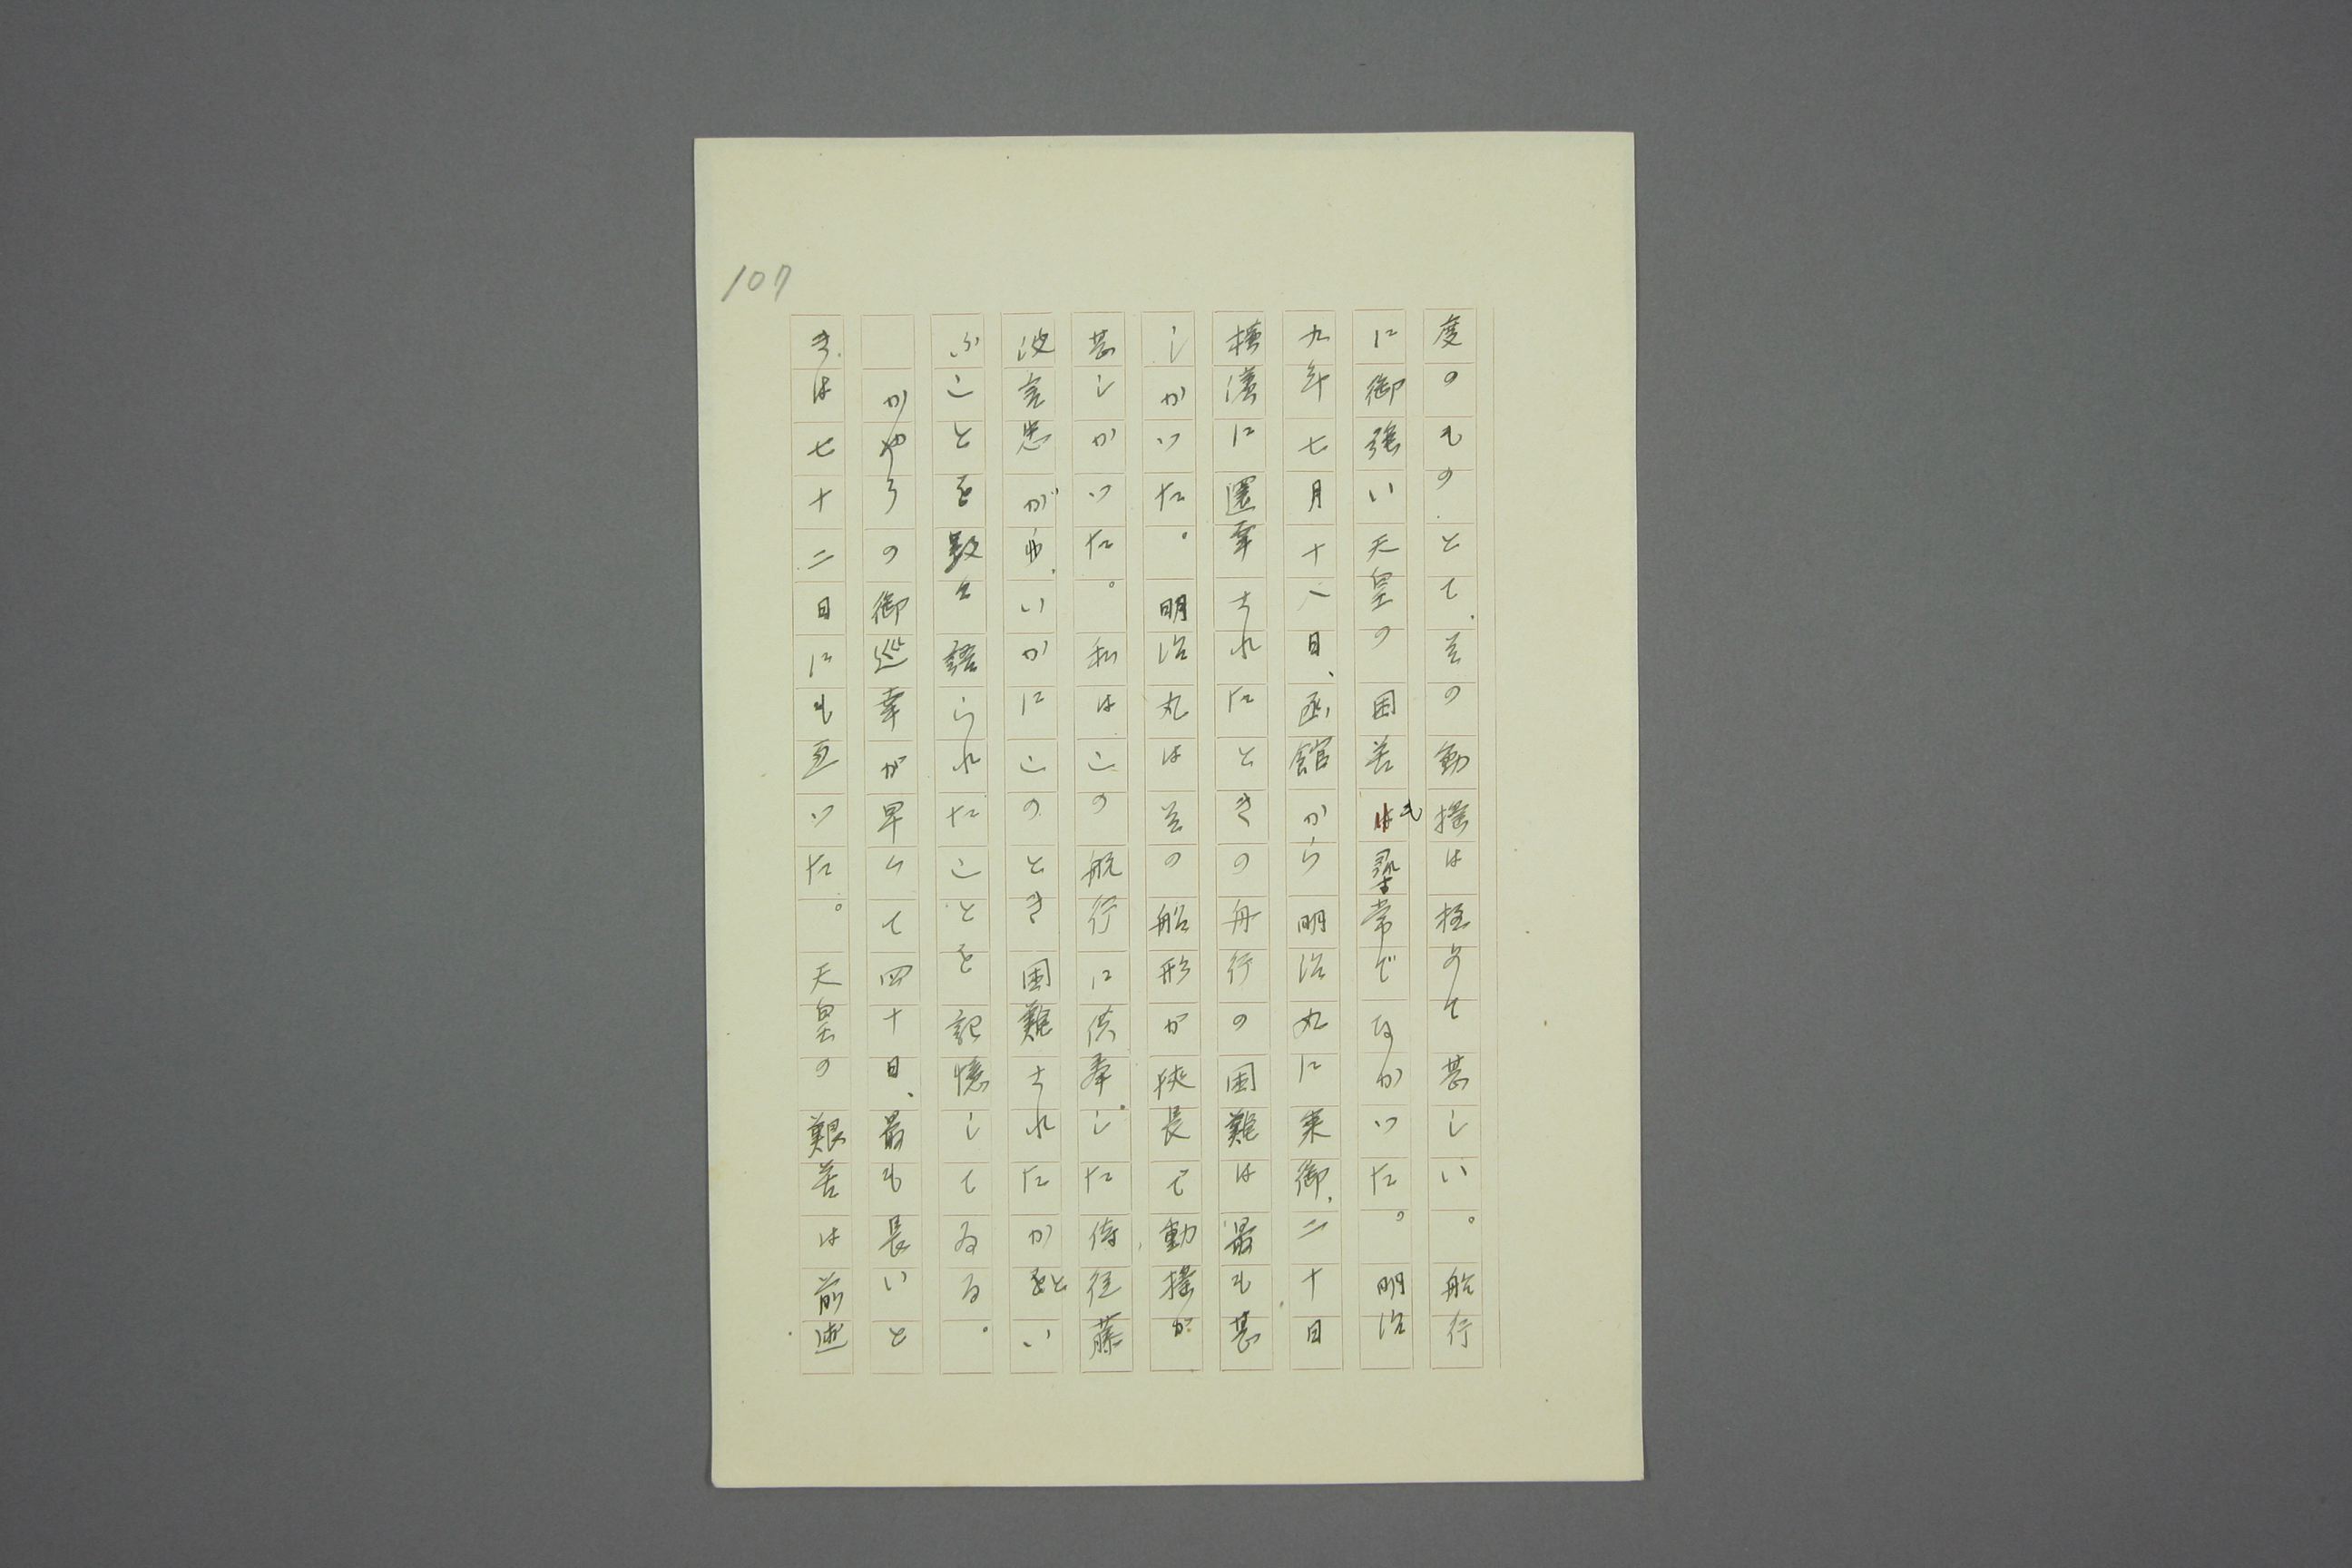 107
度のものとて、其の動揺は極めて甚しい。船行
に御強い天皇の困苦も尋常でなかつた。明治
九年七月十八日、函館から明治丸に乗御、二十日
横濱に還幸されたときの舟行の困難は最も甚
しかつた。明治丸は其の船形が狹長で動揺が
甚しかつた。私はこの航行に供奉した侍従藤
波言忠が、いかにこのとき困難されたかとい
ふことを數々語られたことを記憶してゐる。
かやうの御巡幸が早くて四十日、最も長いと
きは七十二日にも亘つた。天皇の艱苦は前述